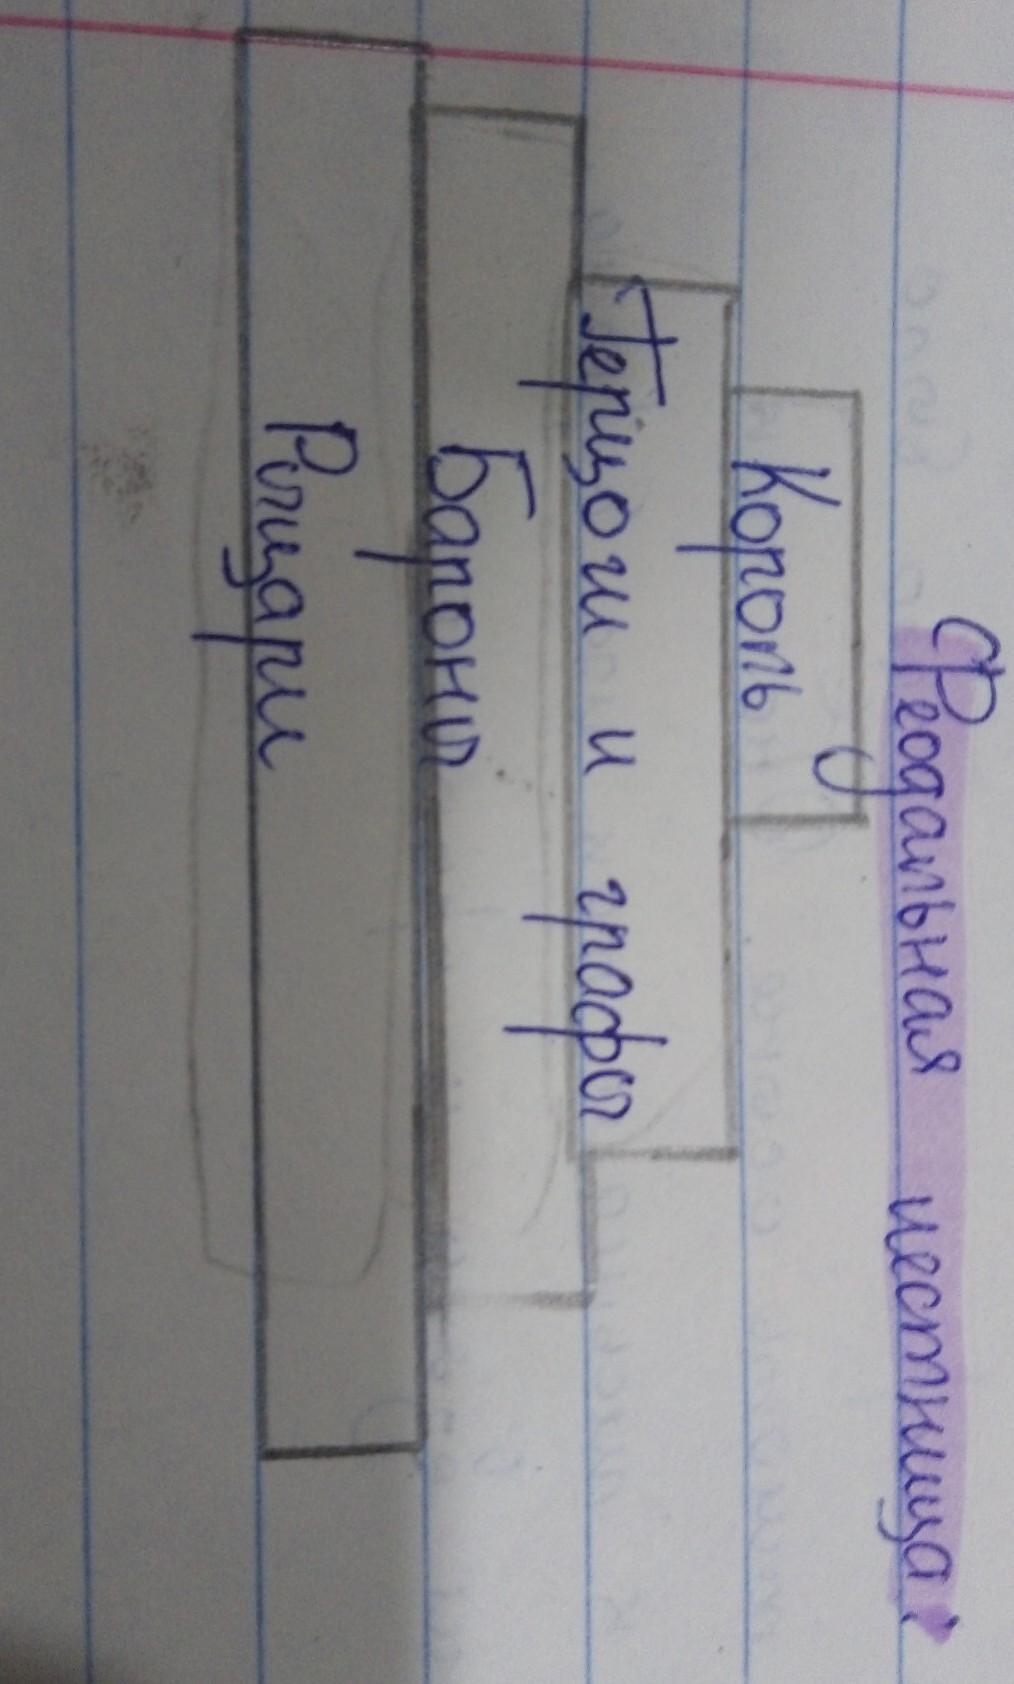 Феодальная лестница:
Король
Герцоги и графы
Бароны
Рыцари